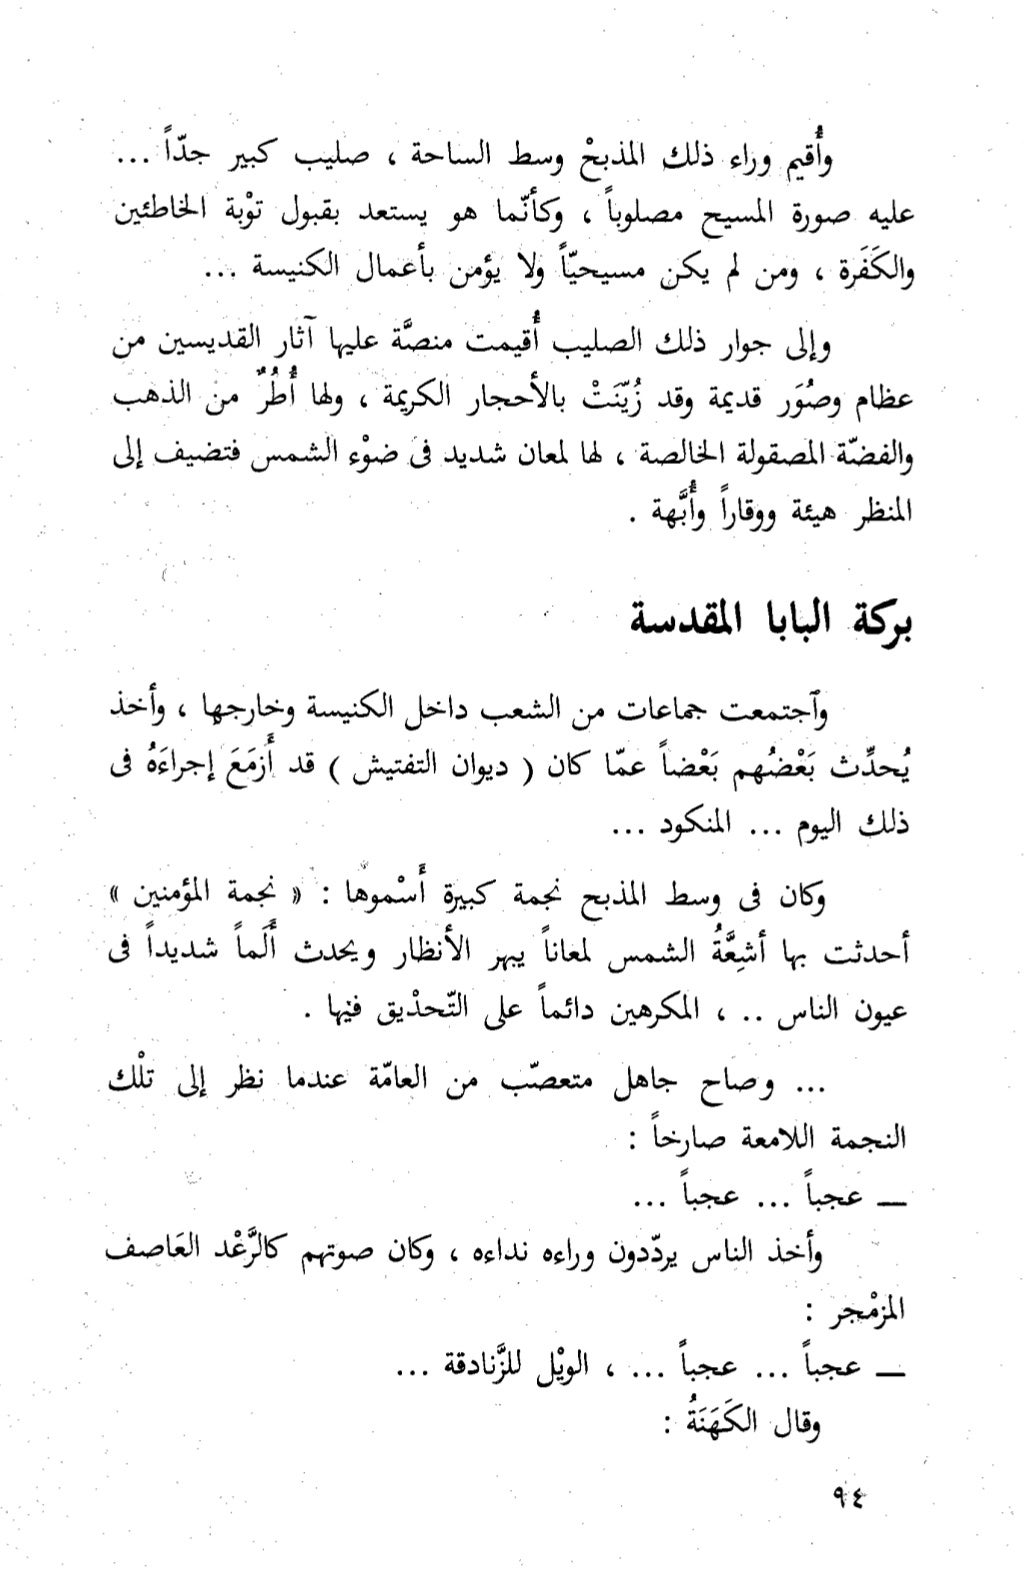 وأُقيم وراء ذلك المذبحْ وسط الساحة ، صليب كبير جدّاً ...
عليه صورة المسيح مصلوباً ، وكأنّما هو يستعد بقبول توْبة الخاطئين
والكَفَرة ، ومن لم يكن مسيحيّاً ولا يؤمن بأعمال الكنيسة ...
وإلى جوار ذلك الصليب أُقيمت منصَّة عليها آثار القديسين من
عظام وصُوَر قديمة وقد زُيّنَتْ بالأحجار الكريمة ، ولها أُطُرٌ من الذهب
والفضّة المصقولة الخالصة ، لها لمعان شديد فى ضوْء الشمس فتضيف إلى
المنظر هيئة ووقاراً وأُبَّهة .
بركة البابا المقدسة
وٱجتمعت جماعات من الشعب داخل الكنيسة وخارجها ، وأخذ
يُحدِّث بَعْضُهم بَعْضاً عمّا كان ( ديوان التفتيش ) قد أَزمَعَ إجراءَهُ فى
ذلك اليوم ... المنكود ...
وكان فى وسط المذبح نجمة كبيرة أَسْموها : « نجمة المؤمنين »
أحدثت بها أشِعَّةُ الشمس لمعاناً يبهر الأنظار ويحدث أَلَماً شديداً فى
عيون الناس .. ، المكرهين دائماً على التّحدْيق فيْها .
... وصاح جاهل متعصّب من العامّة عندما نظر إلى تلْك
النجمة اللامعة صارخاً :
ـــ عجباً ... عجباً ...
وأخذ الناس يردّدون وراءه نداءه ، وكان صوتهم كالرَّعْد العَاصف
المزمْجر :
ـــ عجباً ... عجباً ... ، الويْل للزَّنادقة ...
وقال الكَهَنَةُ :
٩٤